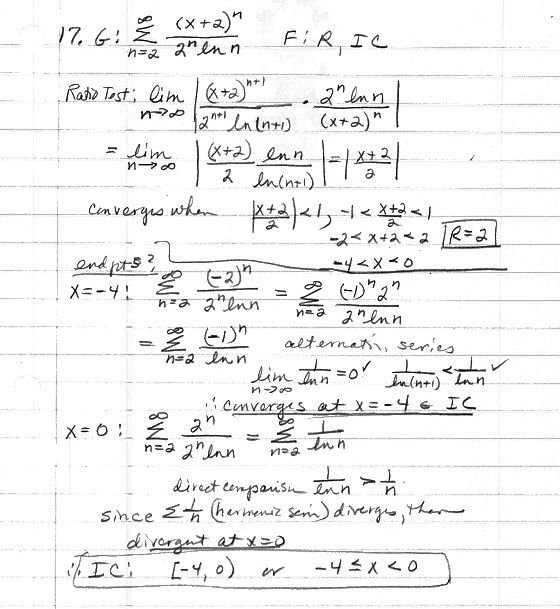 17. G: ∞ Σ n=2 (x+2)^n / 2^n ln n F: R, IC
Ratio Test: lim n→∞ | (x+2)^(n+1) / 2^(n+1) ln(n+1) · 2^n ln n / (x+2)^n |
= lim n→∞ | (x+2)/2 · ln n / ln(n+1) | = | x+2 / 2 |
converges when | x+2 / 2 | < 1, -1 < x+2 / 2 < 1
-2 < x+2 < 2 R=2
-4 < x < 0
endpts?
x=-4: ∞ Σ n=2 (-2)^n / 2^n ln n = ∞ Σ n=2 (-1)^n 2^n / 2^n ln n
= ∞ Σ n=2 (-1)^n / ln n alternatin. series
lim n→∞ 1/ln n = 0 ✓ 1/ln(n+1) < 1/ln n ✓
∴ converges at x=-4 ∈ IC
x=0: ∞ Σ n=2 2^n / 2^n ln n = ∞ Σ n=2 1/ln n
direct comparison 1/ln n > 1/n
since Σ 1/n (harmonic series) diverges, then
divergent at x=0
∴ IC: [-4, 0) or -4 ≤ x < 0